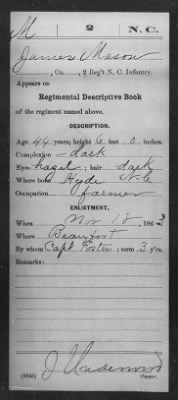 M 2 N.C.
James Mason
, Co. , 2 Reg't N. C. Infantry.
Appears on
Regimental Descriptive Book
of the regiment named above.
DESCRIPTION.
Age 44 years; height 6 feet 0 inches.
Complexion dark
Eyes hazel; hair dark
Where born Hyde N.C
Occupation farmer
ENLISTMENT.
When Nov 18, 1863
Where Beaufort
By whom Capt Foster; term 3 y'rs.
Remarks:
J Underwood
Copyist.